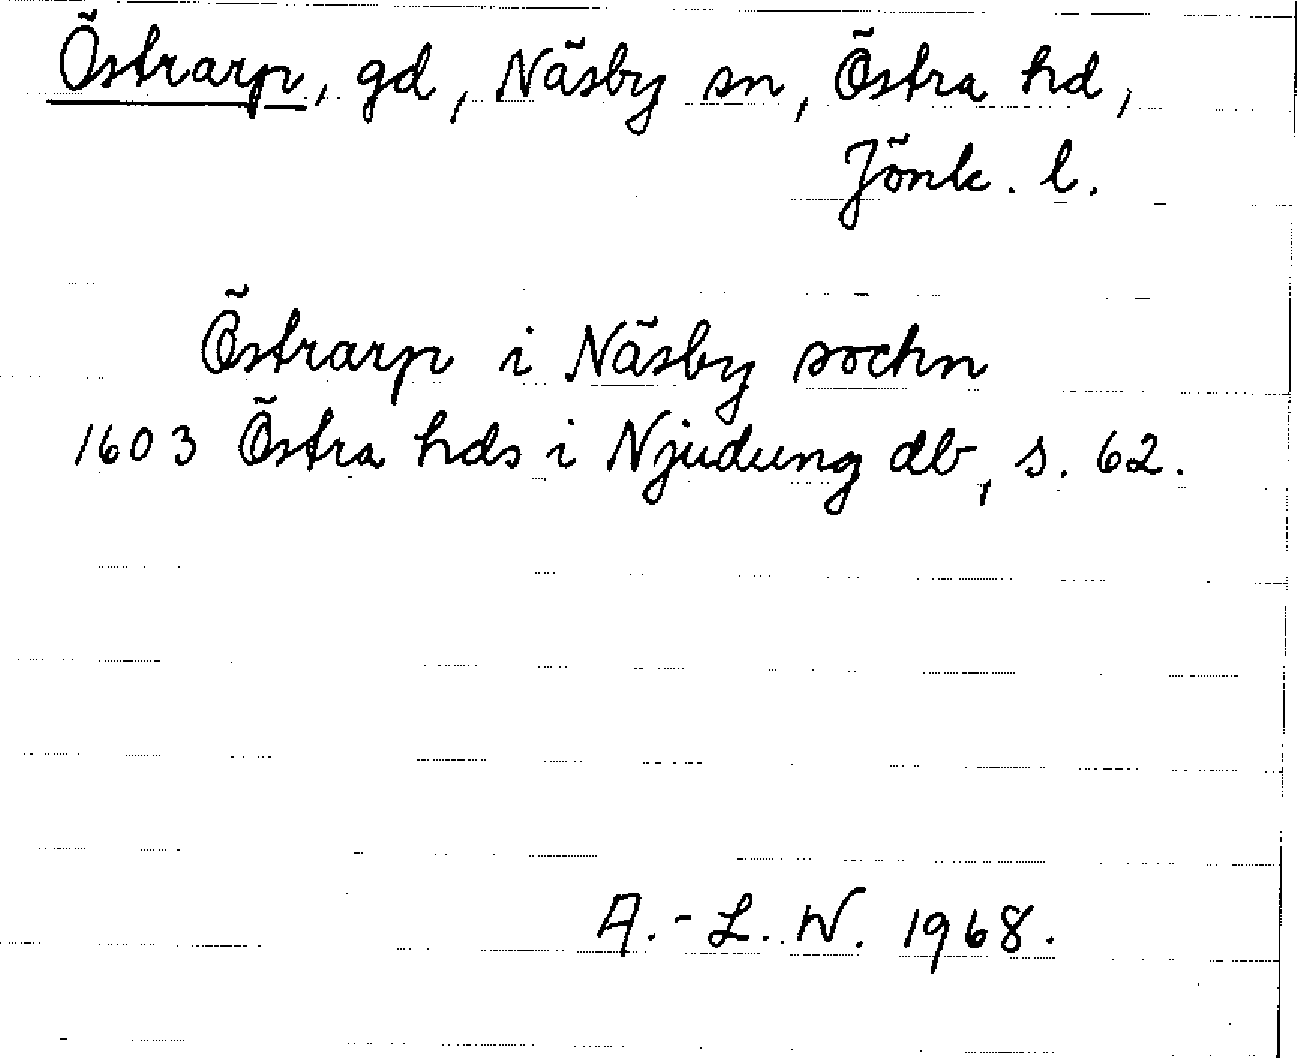 Östrarp, gd, Näsby sn, Östra hd,
Jönk. l.
Östrarp i Näsby sochn
1603 Östra hds i Njudung db, s. 62.
A.-L. W. 1968.